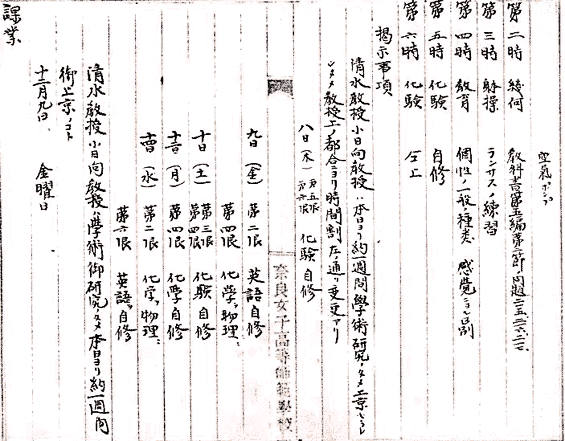 空氣ポンプ
第二時 幾何 教科書第五編第二節問題二五、二六、二七
第三時 体操 ランサース練習
第四時 教育 個性ノ一般ノ種類 感覚ニヨル別
第五時 化験 自修
第六時 化験 仝上
掲示事項
清水教授小日向教授ハ本日ヨリ約一週間學術研究ノタメ上京セラレ
シタメ教授上ノ都合ニヨリ時間割左ノ通リ変更アリ
八日(木) 第五限 第六限 化験自修
九日(金) 第二限 英語自修
第四限 化學ヲ物理ニ
十日(土) 第三限 第四限 化験自修
十二日(月) 第四限 化學自修
十四日(水) 第二限 化学ヲ物理ニ
第六限 英語ヲ自修
清水教授小日向教授學術御研究ノタメ本日ヨリ約一週間
御上京ノコト
十二月九日、 金曜日
課業
奈良女子高等師範學校